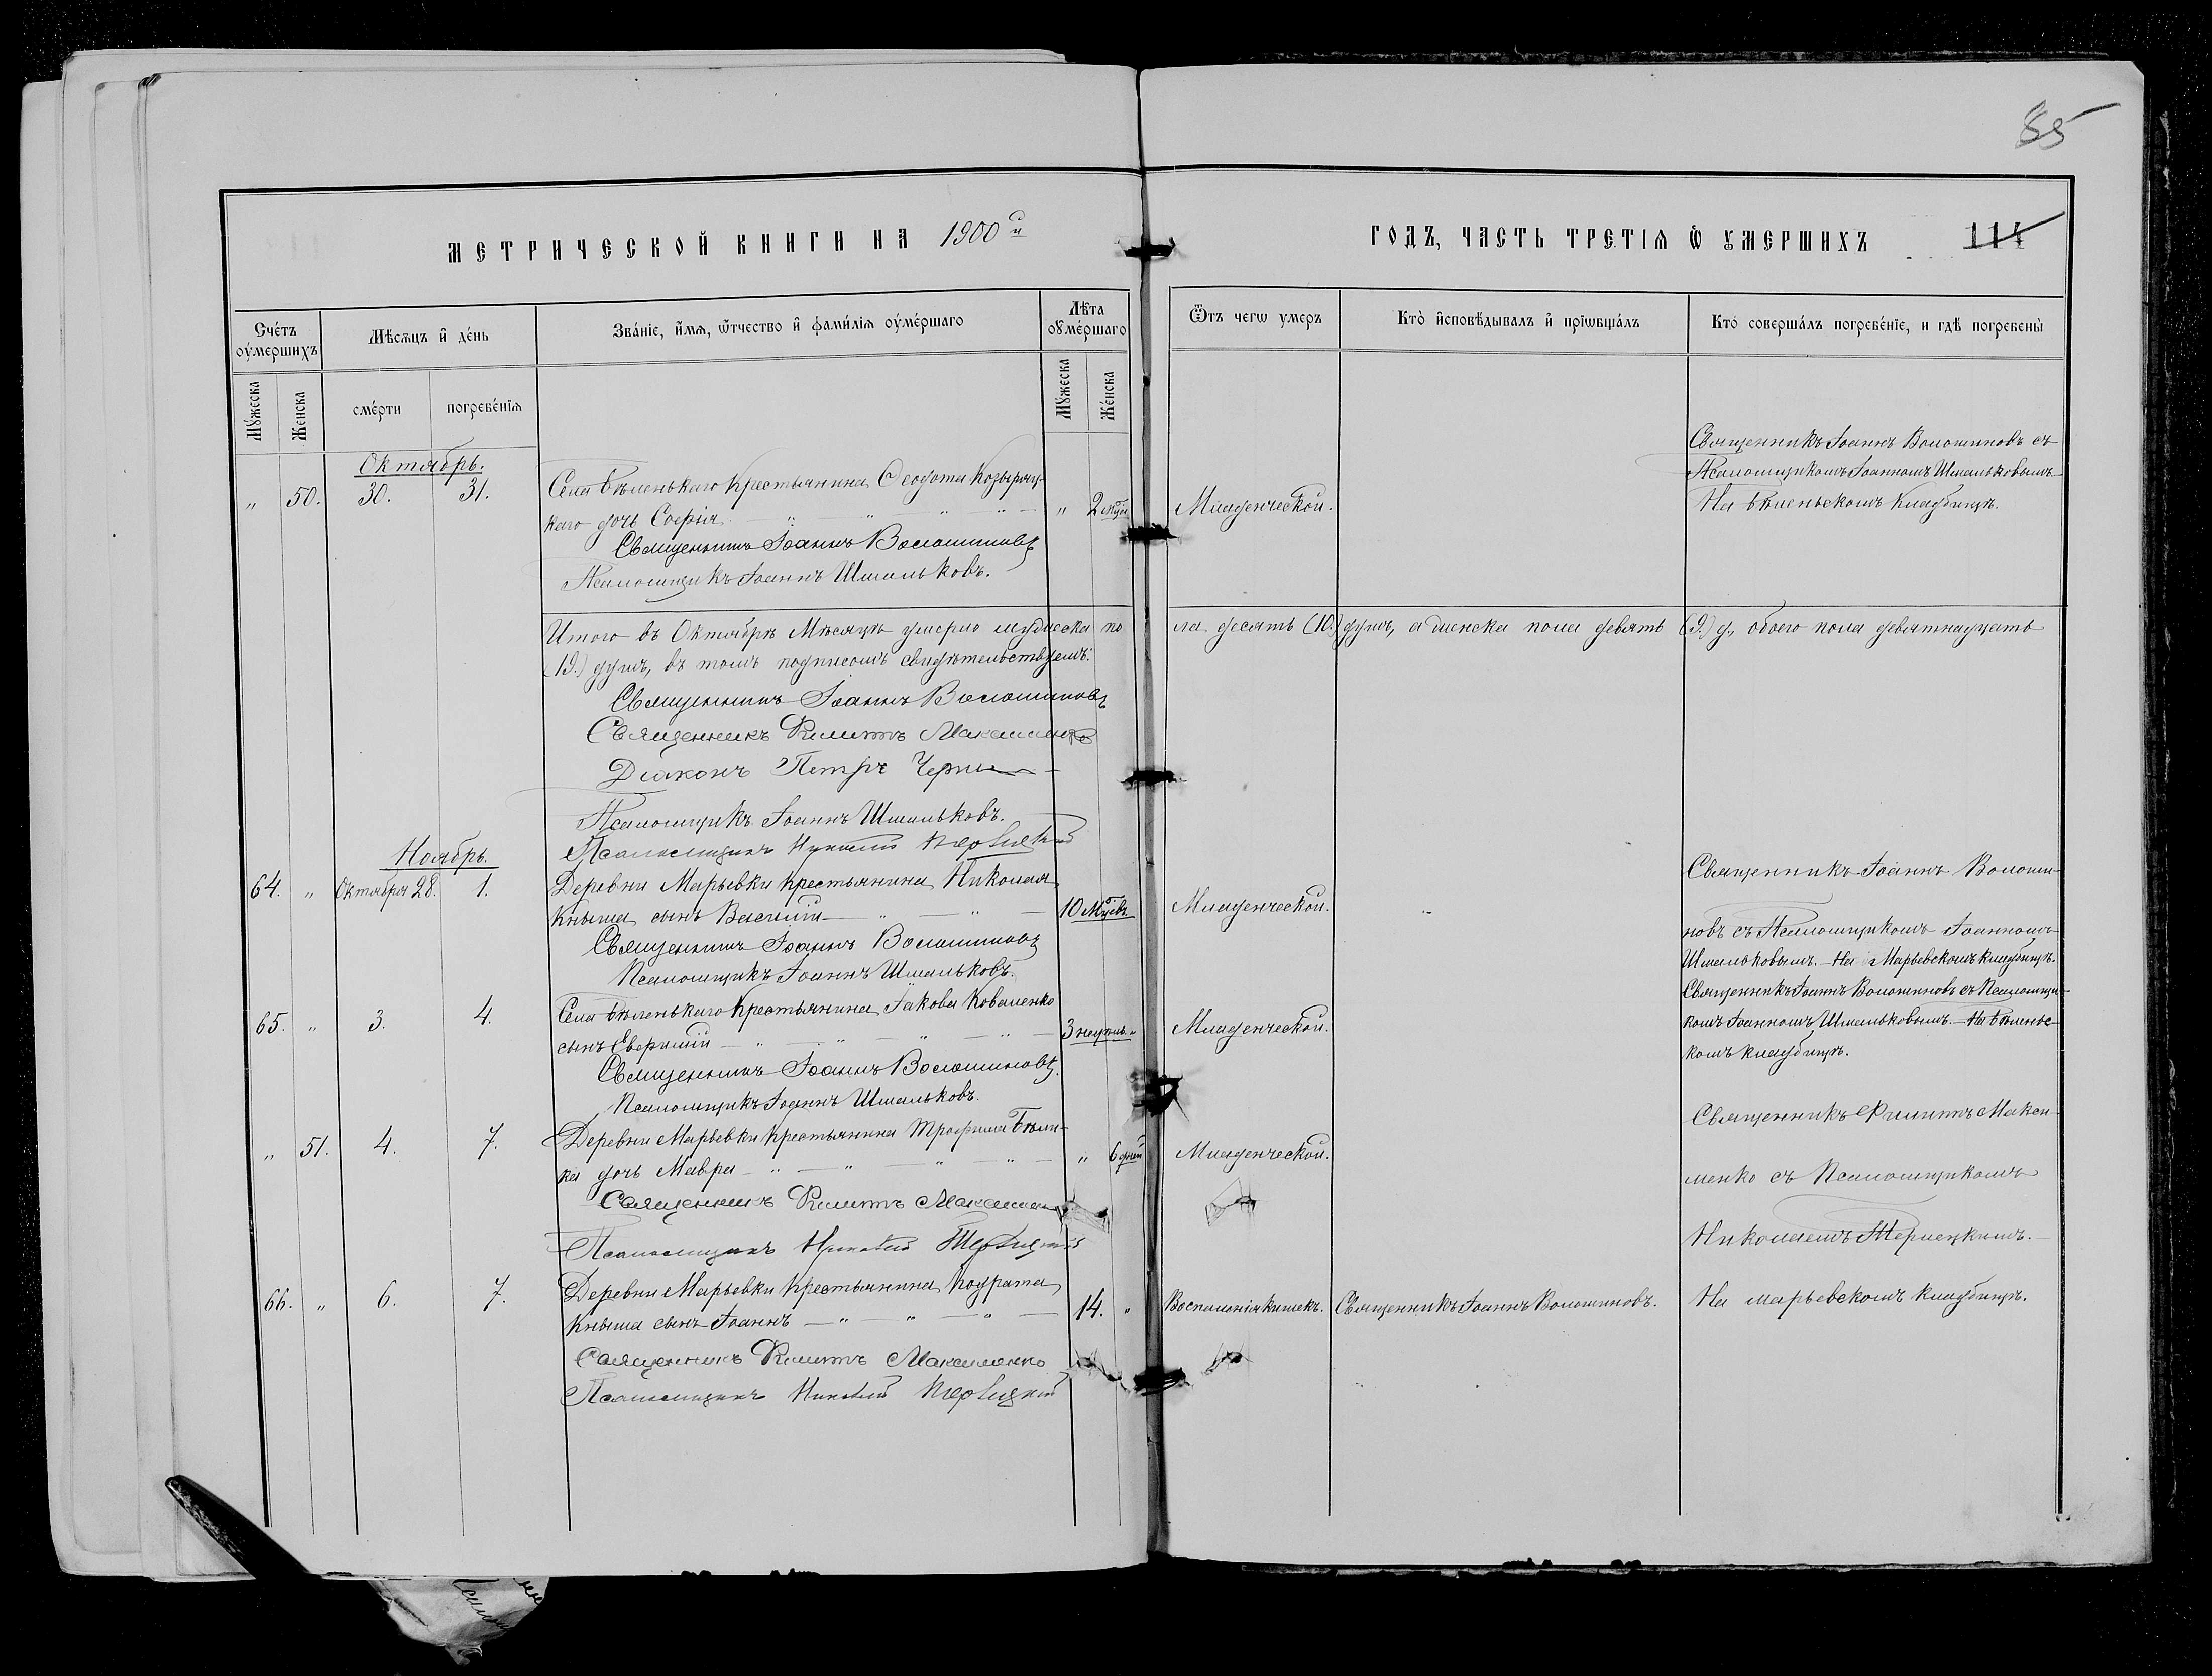 85
МЕТРИЧЕСКОЙ КНИГИ НА 1900й
ГОДЪ, ЧАСТЬ ТРЕТІѦ Ѡ УМЕРШИХЪ
114
Счетъ оумершихъ
Мѣсѧцъ и день
Званіе, имѧ, ѿтчество и фамиліѧ оумершаго
Лѣта оумершаго
Ѿтъ чегѡ умеръ
Кто исповѣдывалъ и пріѡбщалъ
Кто совершалъ погребеніе, и гдѣ погребены
Мужеска
Женска
смерти
погребеніѧ
Мужеска
Женска
Октябрь.
„ 50. 30. 31.
Села Бѣленькаго крестьянина Ѳеодота Козыриц-
каго дочь Софія
„ 2
Священникъ Іоаннъ Волошиновъ
Псаломщикъ Іоаннъ Шмальковъ.
Младенческой.
Священникъ Іоаннъ Волошиновъ съ
Псаломщикомъ Іоанномъ Шмальковымъ.
На Бѣленьскомъ кладбищѣ.
Итого въ Октябрѣ Мѣсяцѣ умерло мужеска по
ла десять (10.) душъ, а женска пола девять (9.) д., обоего пола девятнадцать
(19.) душъ, въ томъ подписомъ свидѣтельствуемъ:
Священникъ Іоаннъ Волошиновъ
Священникъ Филиппъ Максименко
Діаконъ Петръ
Псаломщикъ Іоаннъ Шмальковъ.
Псаломщикъ Николай Терлецкій
Ноябрь.
64. „ Октября 28. 1.
Деревни Марьевки крестьянина Николая
Кныша сынъ Василій
10 мѣсяцевъ
Священникъ Іоаннъ Волошиновъ
Псаломщикъ Іоаннъ Шмальковъ.
Младенческой.
Священникъ Іоаннъ Волоши-
новъ съ Псаломщикомъ Іоанномъ
Шмальковымъ. На Марьевскомъ кладбищѣ.
65. „ 3. 4.
Села Бѣленькаго крестьянина Іакова Коваленко
сынъ
3 недѣль. „
Священникъ Іоаннъ Волошиновъ.
Псаломщикъ Іоаннъ Шмальковъ.
Младенческой.
Священникъ Іоаннъ Волошиновъ съ Псаломщи-
комъ Іоанномъ Шмальковымъ. На Бѣленьс-
комъ кладбищѣ.
„ 51. 4. 7.
Деревни Марьевки крестьянина Трофима Бѣли-
ка дочь Мавра
„ 6 дней
Священникъ Филиппъ Максименко
Псаломщикъ Николай Терлецкій
Младенческой.
Священникъ Филиппъ Макси-
менко съ Псаломщикомъ
Николаемъ Терлецкимъ.
66. „ 6. 7.
Деревни Марьевки крестьянина Кодрата
Кныша сынъ Іоаннъ
14. „
Священникъ Филиппъ Максименко
Псаломщикъ Николай Терлецкій
Воспаленія кишекъ.
Священникъ Іоаннъ Волошиновъ.
На марьевскомъ кладбищѣ.